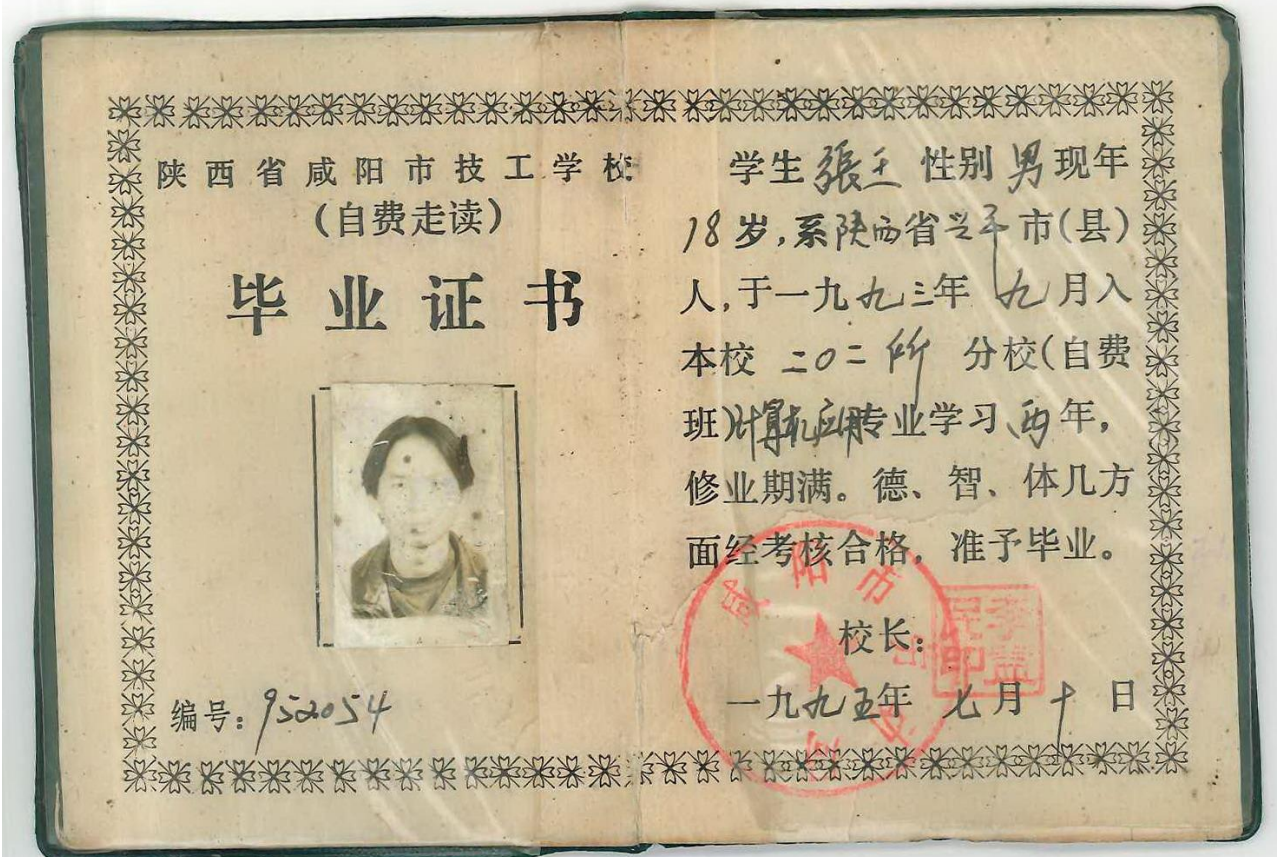 陕西省咸阳市技工学校
（自费走读）
毕业证书
编号：952054
学生 張王 性别 男 现年
18岁，系陕西省兴平市（县）
人，于一九九三年 九月入
本校 二〇二所 分校（自费
班）计算机应用专业学习 两年，
修业期满。德、智、体几方
面经考核合格，准予毕业。
校长：
一九九五年 七月 十 日
咸阳市
李益民印